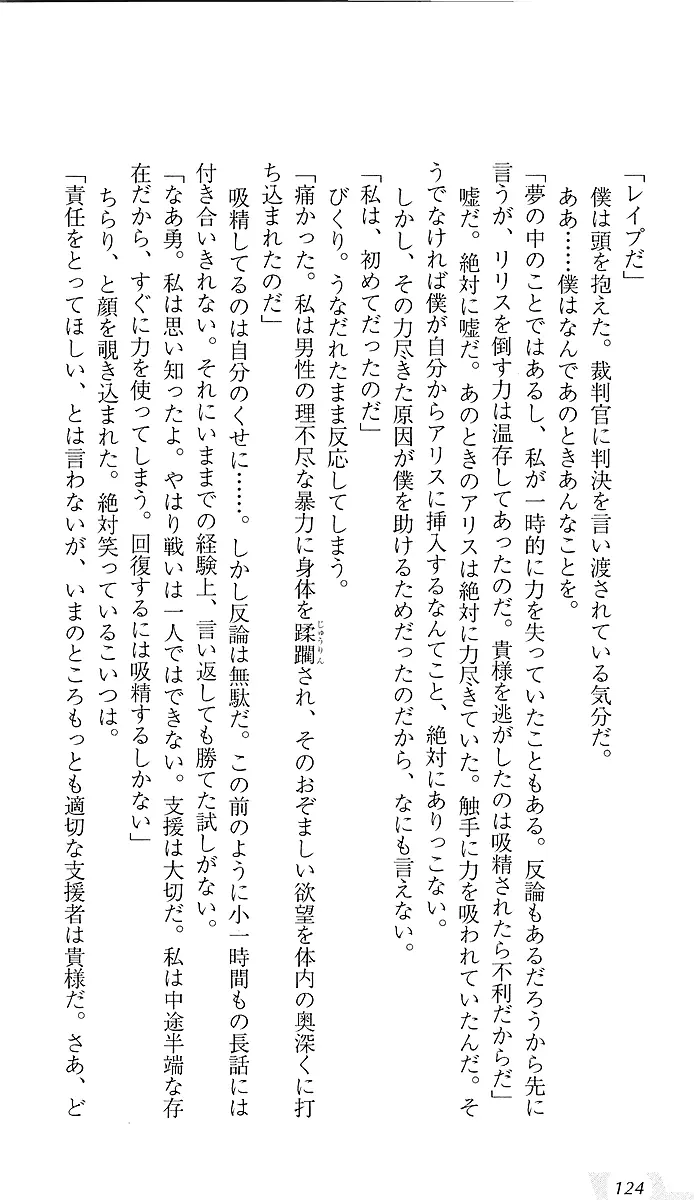 「レイプだ」
僕は頭を抱えた。裁判官に判決を言い渡されている気分だ。
ああ……僕はなんであのときあんなことを。
「夢の中のことではあるし、私が一時的に力を失っていたこともある。反論もあるだろうから先に
言うが、リリスを倒す力は温存してあったのだ。貴様を逃がしたのは吸精されたら不利だからだ」
嘘だ。絶対に嘘だ。あのときのアリスは絶対に力尽きていた。触手に力を吸われていたんだ。そ
うでなければ僕が自分からアリスに挿入するなんてこと、絶対にありっこない。
しかし、その力尽きた原因が僕を助けるためだったのだから、なにも言えない。
「私は、初めてだったのだ」
びくり。うなだれたまま反応してしまう。
「痛かった。私は男性の理不尽な暴力に身体を蹂躙され、そのおぞましい欲望を体内の奥深くに打
じゅうりん
ち込まれたのだ」
吸精してるのは自分のくせに……。しかし反論は無駄だ。この前のように小一時間もの長話には
付き合いきれない。それにいままでの経験上、言い返しても勝てた試しがない。
「なあ勇。私は思い知ったよ。やはり戦いは一人ではできない。支援は大切だ。私は中途半端な存
在だから、すぐに力を使ってしまう。回復するには吸精するしかない」
ちらり、と顔を覗き込まれた。絶対笑っているこいつは。
「責任をとってほしい、とは言わないが、いまのところもっとも適切な支援者は貴様だ。さあ、ど
124